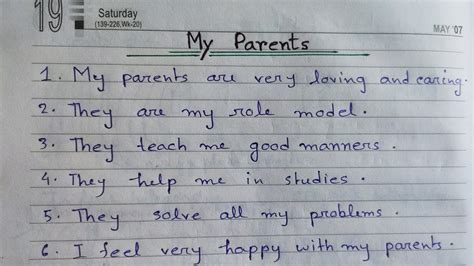 19
Saturday
(139-226,Wk-20)
MAY '07
My Parents
1. My parents are very loving and caring.
2. They are my role model.
3. They teach me good manners.
4. They help me in studies.
5. They solve all my problems.
6. I feel very happy with my parents.